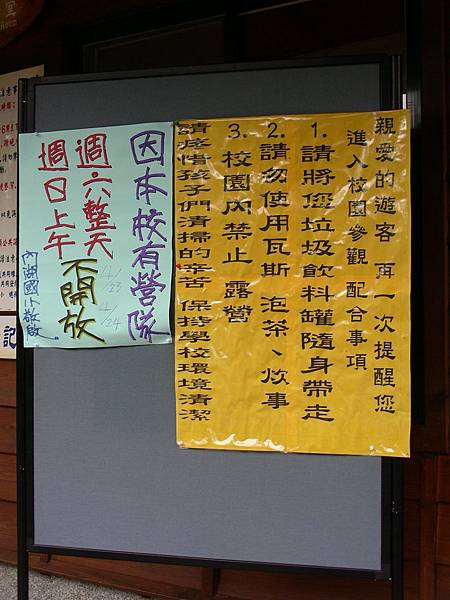 親愛的遊客 再一次提醒您
進入校園參觀 配合事項
1.請將您垃圾飲料罐隨身帶走
2.請勿使用瓦斯 泡茶、炊事
3.校園內禁止 露營
請疼惜孩子們清掃的辛苦 保持學校環境清潔
因本校有營隊
週六整天
週日上午
不開放
4/23
4/24
內湖國小敬啟
記